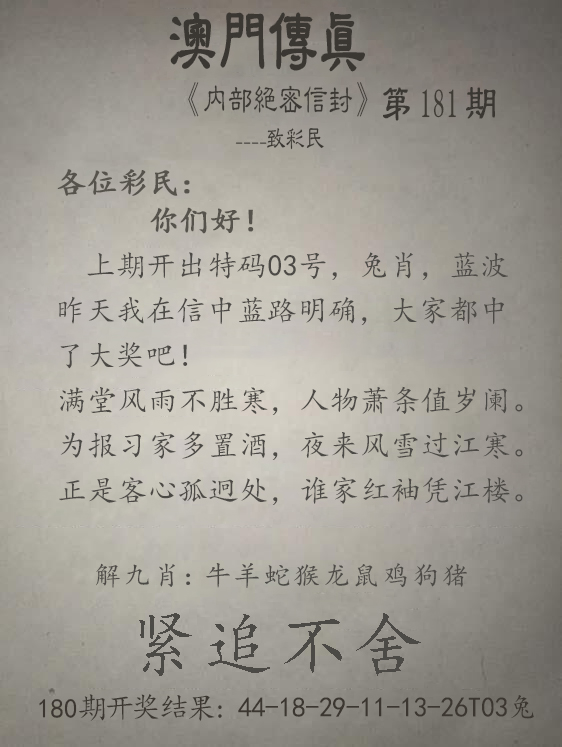 澳門傳眞
《内部絕密信封》第181期
----致彩民
各位彩民：
你们好！
上期开出特码03号，兔肖，蓝波
昨天我在信中蓝路明确，大家都中
了大奖吧！
满堂风雨不胜寒，人物萧条值岁阑。
为报习家多置酒，夜来风雪过江寒。
正是客心孤迥处，谁家红袖凭江楼。
解九肖：牛羊蛇猴龙鼠鸡狗猪
紧追不舍
180期开奖结果：44-18-29-11-13-26T03兔